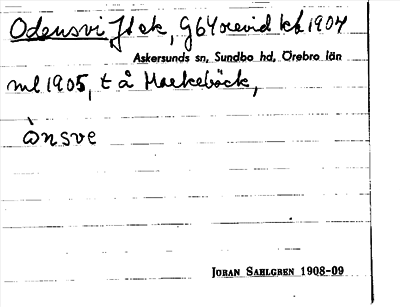 Odensvi, Jäk, G64orevid kb 1904
Askersunds sn, Sundbo hd, Örebro län
ml 1905, t å Markebäck,
ònsve
JÖRAN SAHLGREN 1908-09